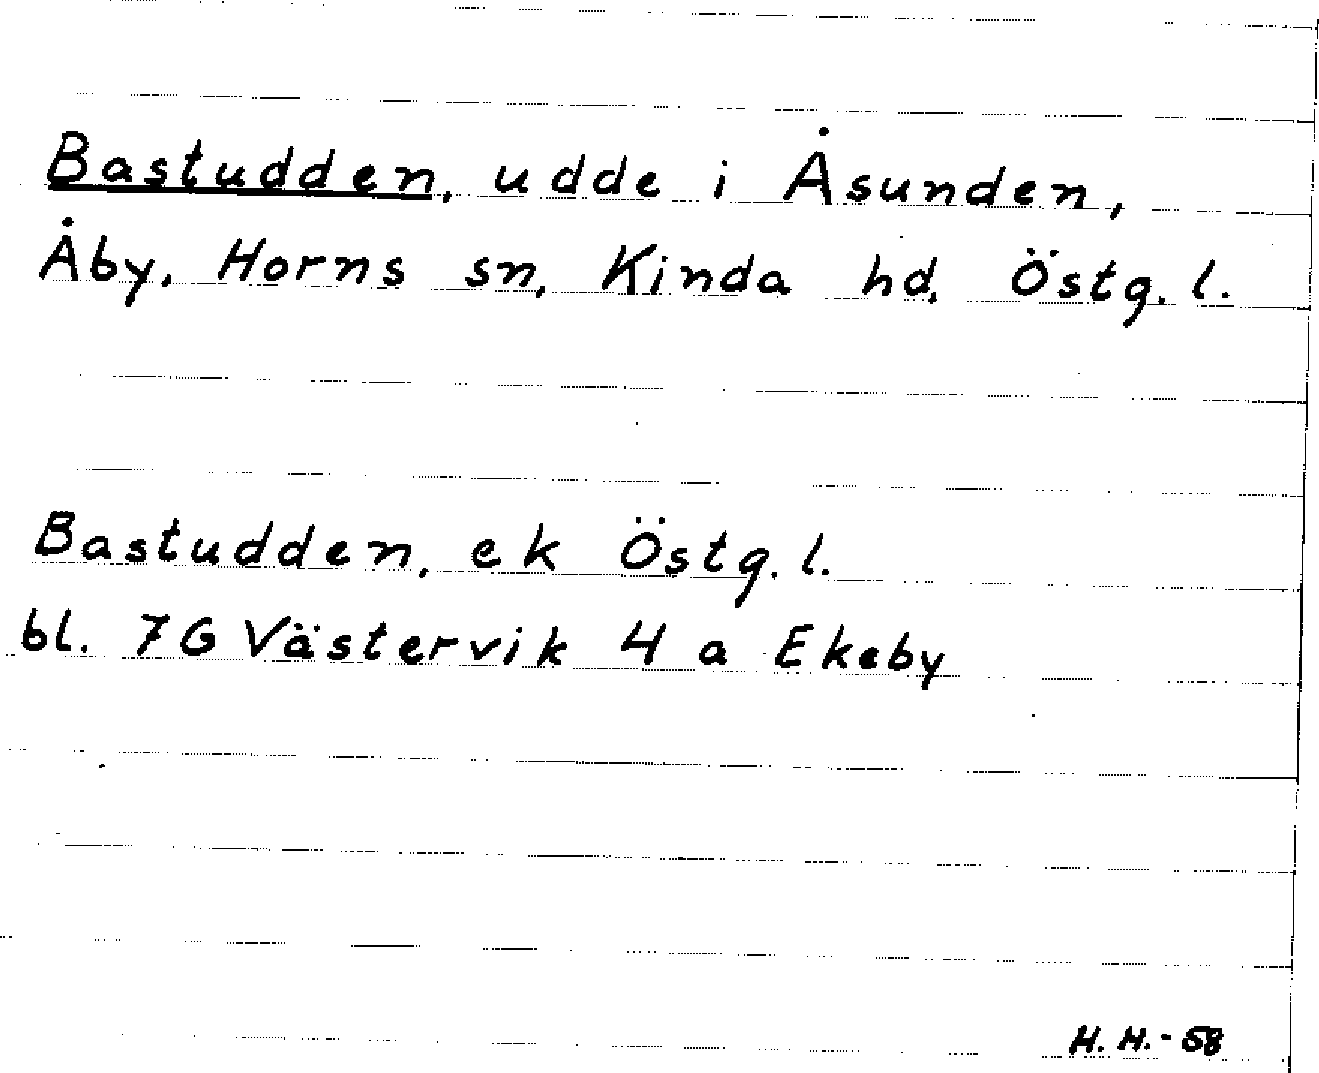 Bastudden, udde i Åsunden,
Åby, Horns sn, Kinda hd, Östg. l.
Bastudden, ek Östg. l.
bl. 7G Västervik 4 a Ekeby
H. H. - 58